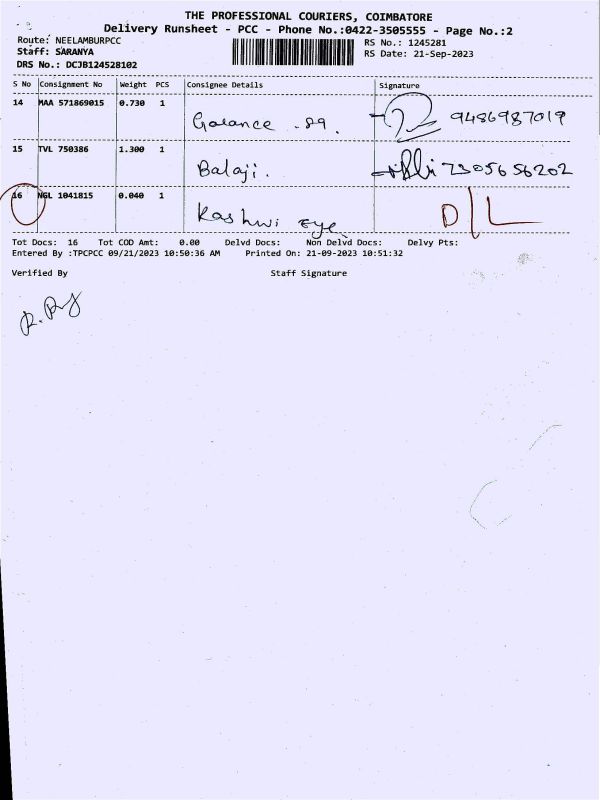 THE PROFESSIONAL COURIERS, COIMBATORE
Delivery Runsheet - PCC - Phone No.:0422-3505555 - Page No.:2
Route: NEELAMBURPCC
RS No.: 1245281
Staff: SARANYA
RS Date: 21-Sep-2023
DRS No.: DCJB124528102
S No Consignment No Weight PCS Consignee Details Signature
14 MAA 571869015 0.730 1
9486987019
15 TVL 750386 1.300 1
Balaji. 7305656202
16 NGL 1041815 0.040 1
Kashwi Eye D/L
Tot Docs: 16 Tot COD Amt: 0.00 Delvd Docs: Non Delvd Docs: Delvy Pts:
Entered By :TPCPCC 09/21/2023 10:50:36 AM Printed On: 21-09-2023 10:51:32
Verified By Staff Signature